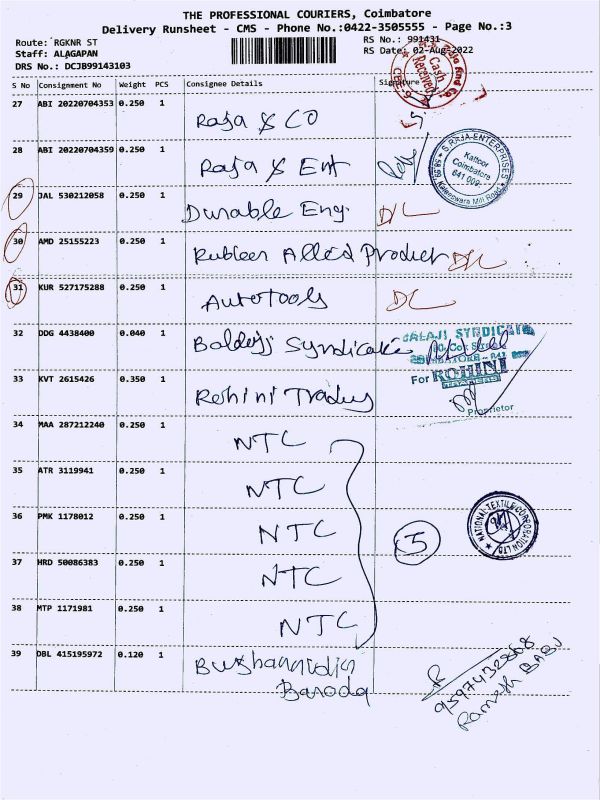 THE PROFESSIONAL COURIERS, Coimbatore
Delivery Runsheet - CMS - Phone No.:0422-3505555 - Page No.:3
Route: RGKNR ST
RS No.: 991431
Staff: ALAGAPAN
RS Date: 02-Aug-2022
DRS No.: DCJB99143103
S No Consignment No Weight PCS Consignee Details Signature
Cash Received
27 ABI 20220704353 0.250 1 Raja & CO
28 ABI 20220704359 0.250 1 Raja & Ent
S.RAJA ENTERPRISES
Kattoor
Coimbatore
641 009.
Kaleeswara Mill Road
29 JAL 530212058 0.250 1 Durable Eng. D/L
30 AMD 25155223 0.250 1 Rubber Allied Product D/L
31 KUR 527175288 0.250 1 Autotools DL
32 DDG 4438400 0.040 1 Balaji Syndicate
BALAJI SYNDICATE
33 KVT 2615426 0.350 1 Rohini Traders
For ROHINI
TRADERS
Proprietor
34 MAA 287212240 0.250 1 NTC
35 ATR 3119941 0.250 1 NTC
36 PMK 1178012 0.250 1 NTC
5
NATIONAL TEXTILE CORPORATION LTD
37 HRD 50086383 0.250 1 NTC
38 MTP 1171981 0.250 1 NTC
39 DBL 415195972 0.120 1
Baroda
Ramesh BABU